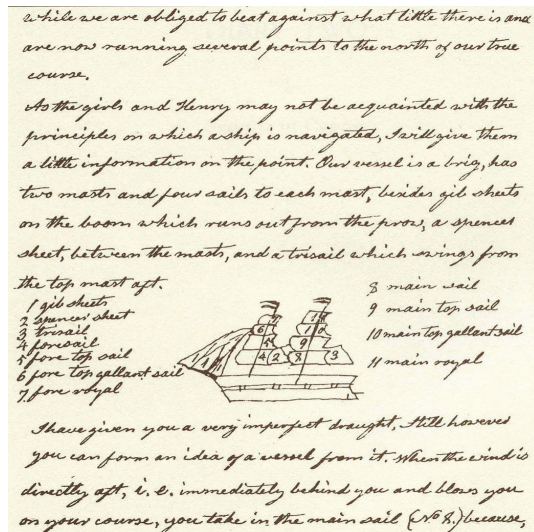 while we are obliged to beat against what little there is and
are now running several points to the north of our true
course.
As the girls and Henry may not be acquainted with the
principles on which a ship is navigated, I will give them
a little information on the point. Our vessel is a brig, has
two masts and four sails to each mast, besides gib sheets
on the boom which runs out from the prow, a spencer
sheet, between the masts, and a trisail which swings from
the top mast aft.
1 gib sheets
2 spencer sheet
3 trisail
4 foresail
5 fore top sail
6 fore top gallant sail
7 fore royal
8 main sail
9 main top sail
10 main top gallant sail
11 main royal
6
5
4 2
9
8 3
I have given you a very imperfect draught, still however
you can form an idea of a vessel from it. When the wind is
directly aft, i.e. immediately behind you and blows you
on your course, you take in the main sail (No 8.) because,